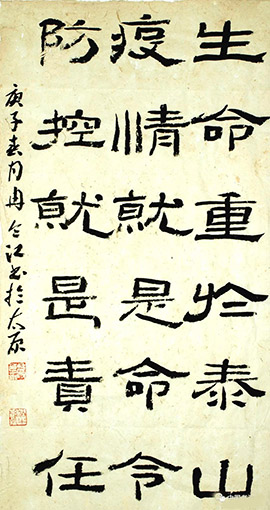 生命重於泰山
疫情就是命令
防控就是責任
庚子春月冉令江書於太原